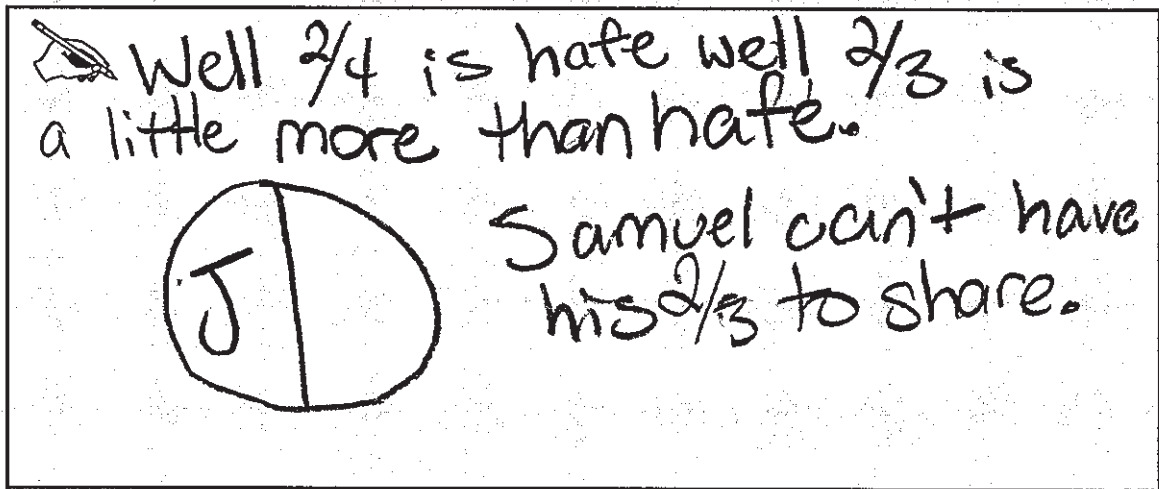 Well 2/4 is hafe well 2/3 is
a little more than hafe.
J
Samuel can't have
his 2/3 to share.